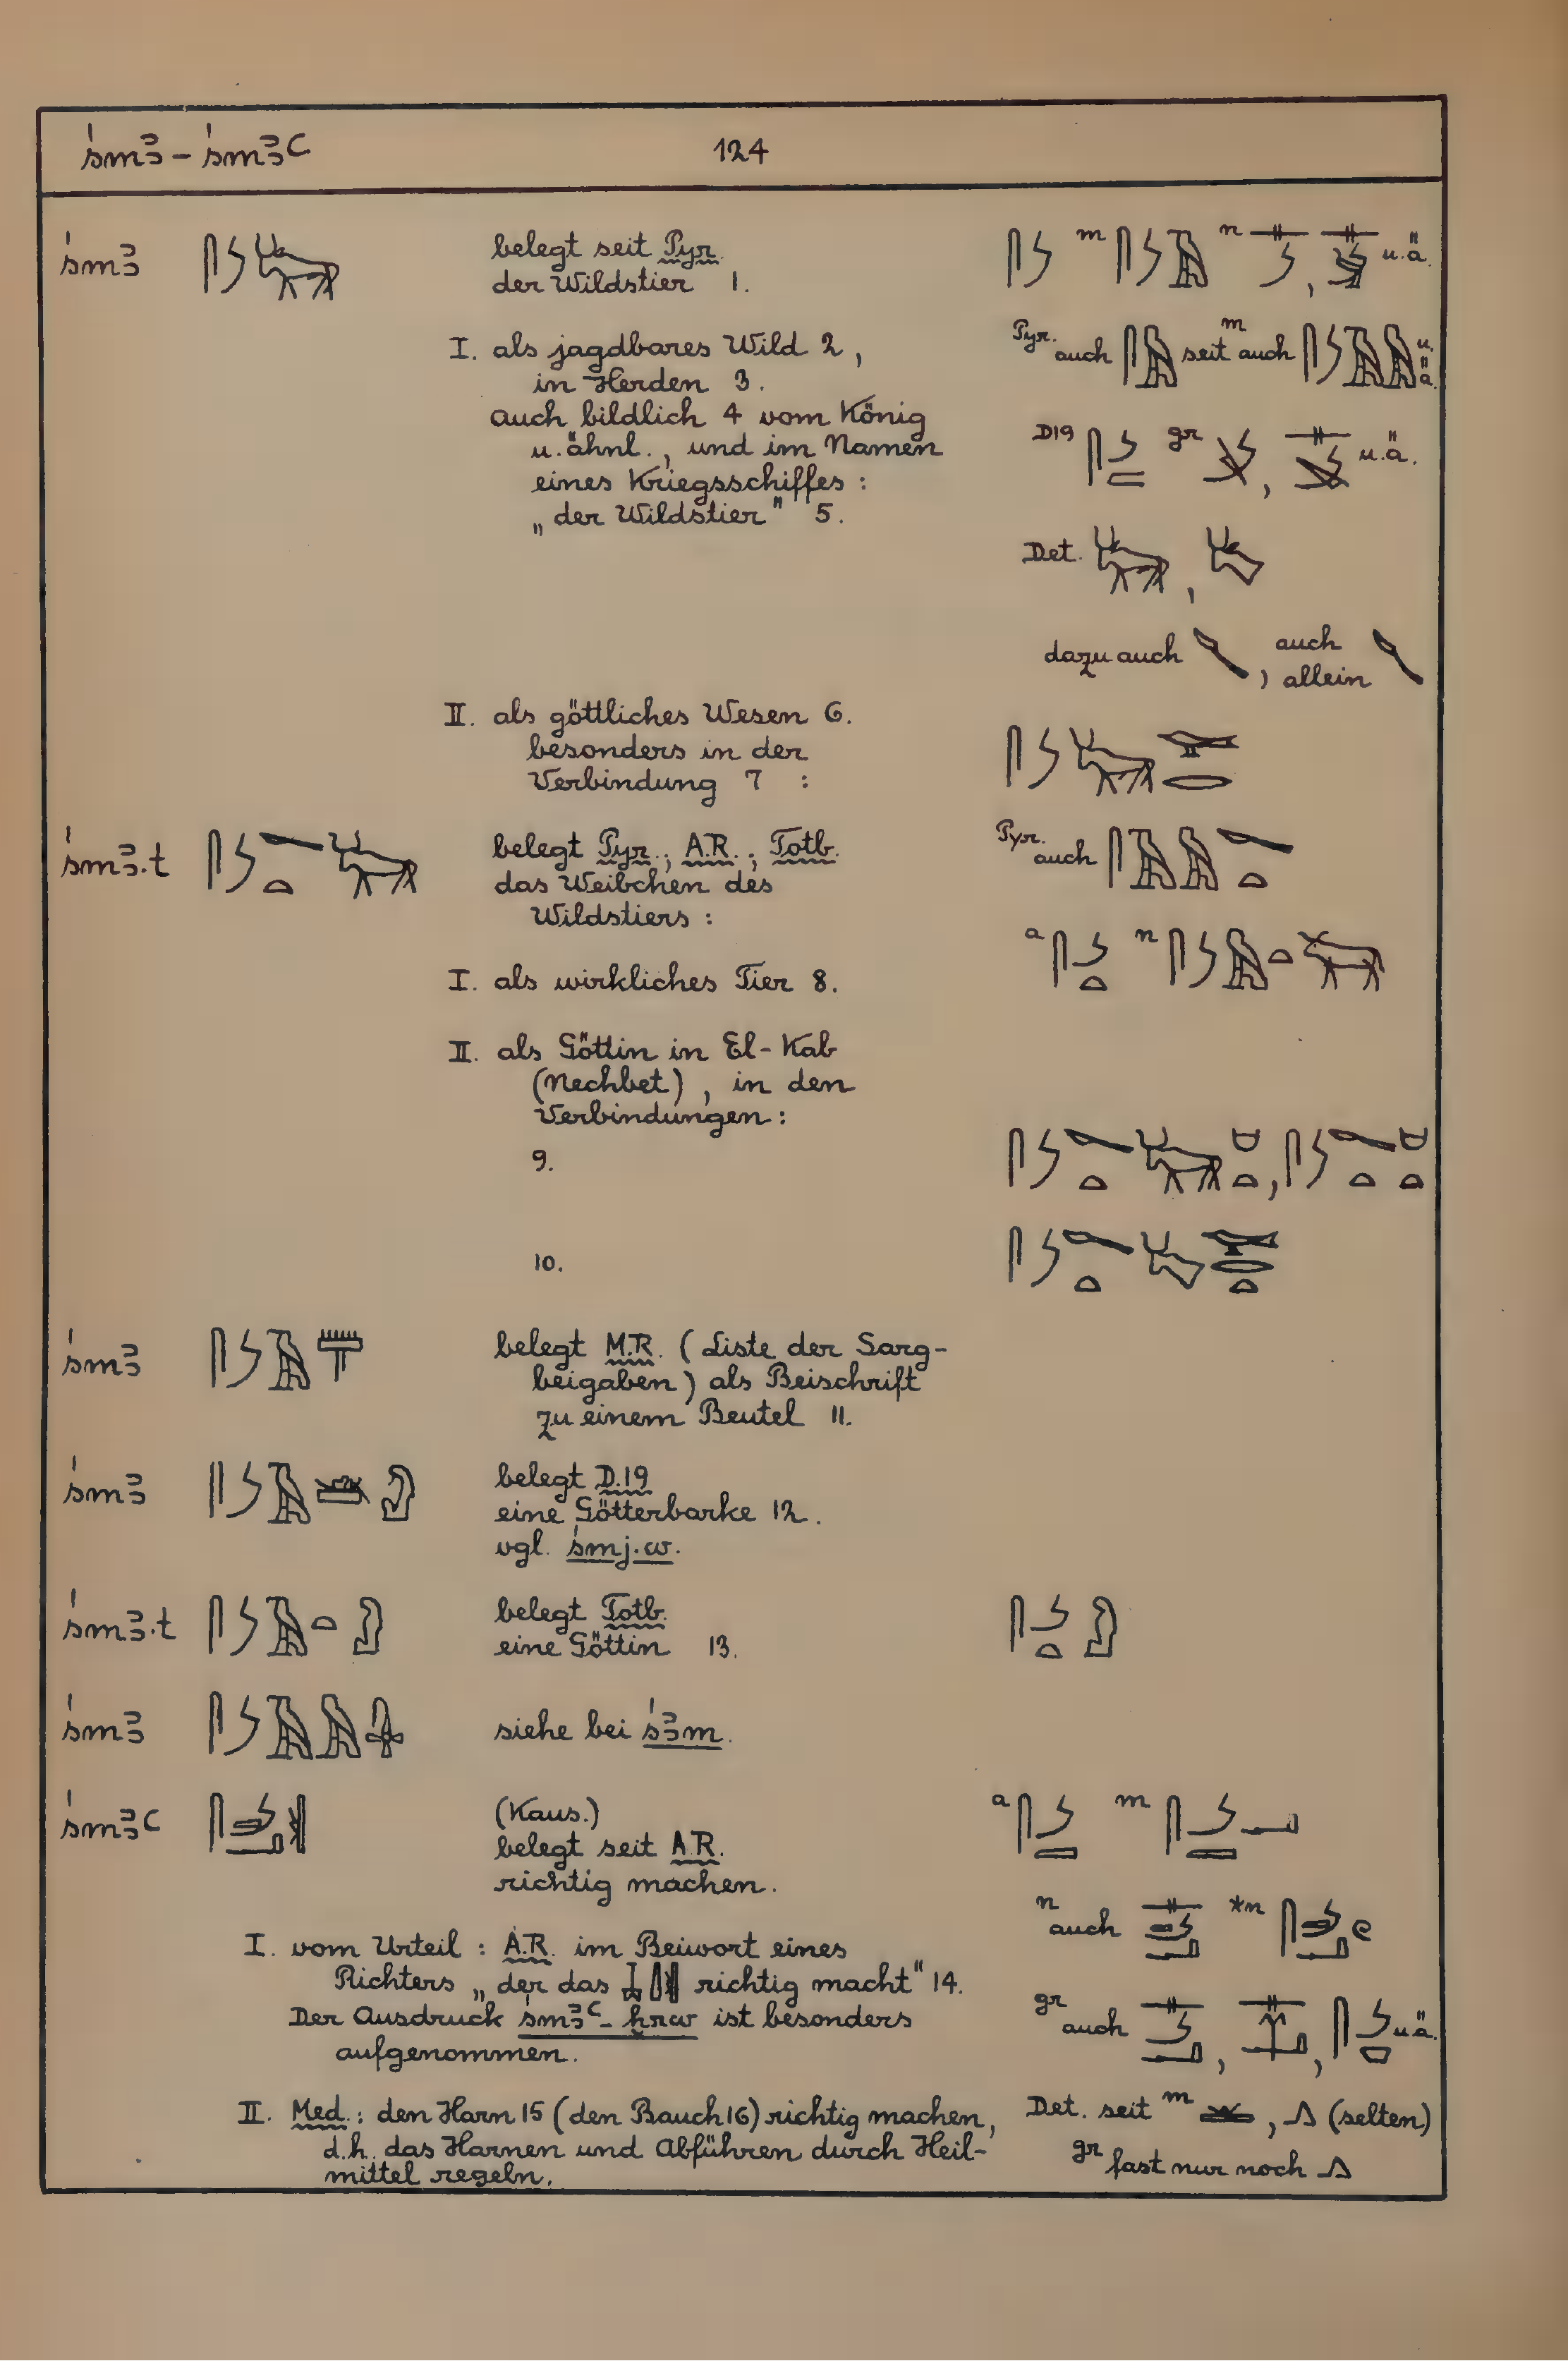 śmꜣ – śmꜣꜥ 124
śmꜣ
belegt seit Pyr.
der Wildstier 1.
m n u.ä.
I. als jagdbares Wild 2,
in Herden 3.
auch bildlich 4 vom König
u. ähnl., und im Namen
eines Kriegsschiffes:
„der Wildstier" 5.
Pyr. auch seit m auch u.ä.
D19 gr , u.ä.
Det. ,
dazu auch , auch allein
II. als göttliches Wesen 6.
besonders in der
Verbindung 7 :
śmꜣ.t
belegt Pyr.; A.R.; Totb.
das Weibchen des
Wildstiers:
Pyr. auch
a n
I. als wirkliches Tier 8.
II. als Göttin in El-Kab
(Nechbet), in den
Verbindungen:
9.
10.
śmꜣ
belegt M.R. (Liste der Sarg-
beigaben) als Beischrift
zu einem Beutel 11.
śmꜣ
belegt D.19
eine Götterbarke 12.
vgl. śmj.w.
śmꜣ.t
belegt Totb.
eine Göttin 13.
śmꜣ
siehe bei śꜣm.
śmꜣꜥ
(Kaus.)
belegt seit A.R.
richtig machen.
a m
n auch *n
I. vom Urteil: A.R. im Beiwort eines
Richters „der das richtig macht" 14.
Der Ausdruck śmꜣꜥ-ḫrw ist besonders
aufgenommen.
gr auch , , u.ä.
II. Med.: den Harn 15 (den Bauch 16) richtig machen,
d.h. das Harnen und Abführen durch Heil-
mittel regeln.
Det. seit m , (selten)
gr fast nur noch